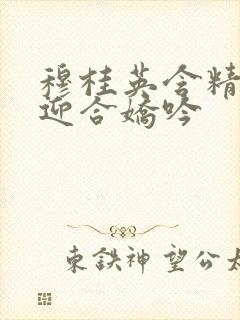 穆桂英含精
迎合嬌吟
東鉄神望公太